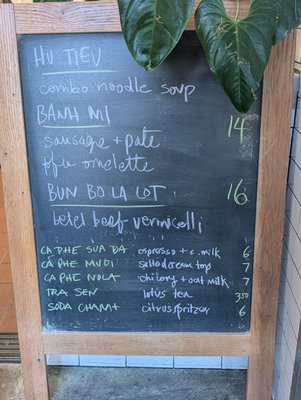 HU TIEU
combo noodle soup
BANH MI 14
sausage + pate
ffu omelette
BUN BO LA LOT 16
betel beef vermicelli
CA PHE SUA DA espresso + c. milk 6
CÀ PHE MUOI salted cream top 7
CA PHE NOLA chicory + oat milk 7
TRA SEN lotus tea 350
SODA CHANH citrus spritzer 6